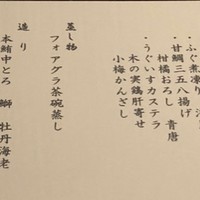 ・ふぐ煮凍り
・甘鯛三五八揚げ
柑橘おろし 青唐
・うぐいすカステラ
木の実鶏肝寄せ
小梅かんざし
蒸し物
フォアグラ茶碗蒸し
造り
本鮪中とろ 鰤 牡丹海老